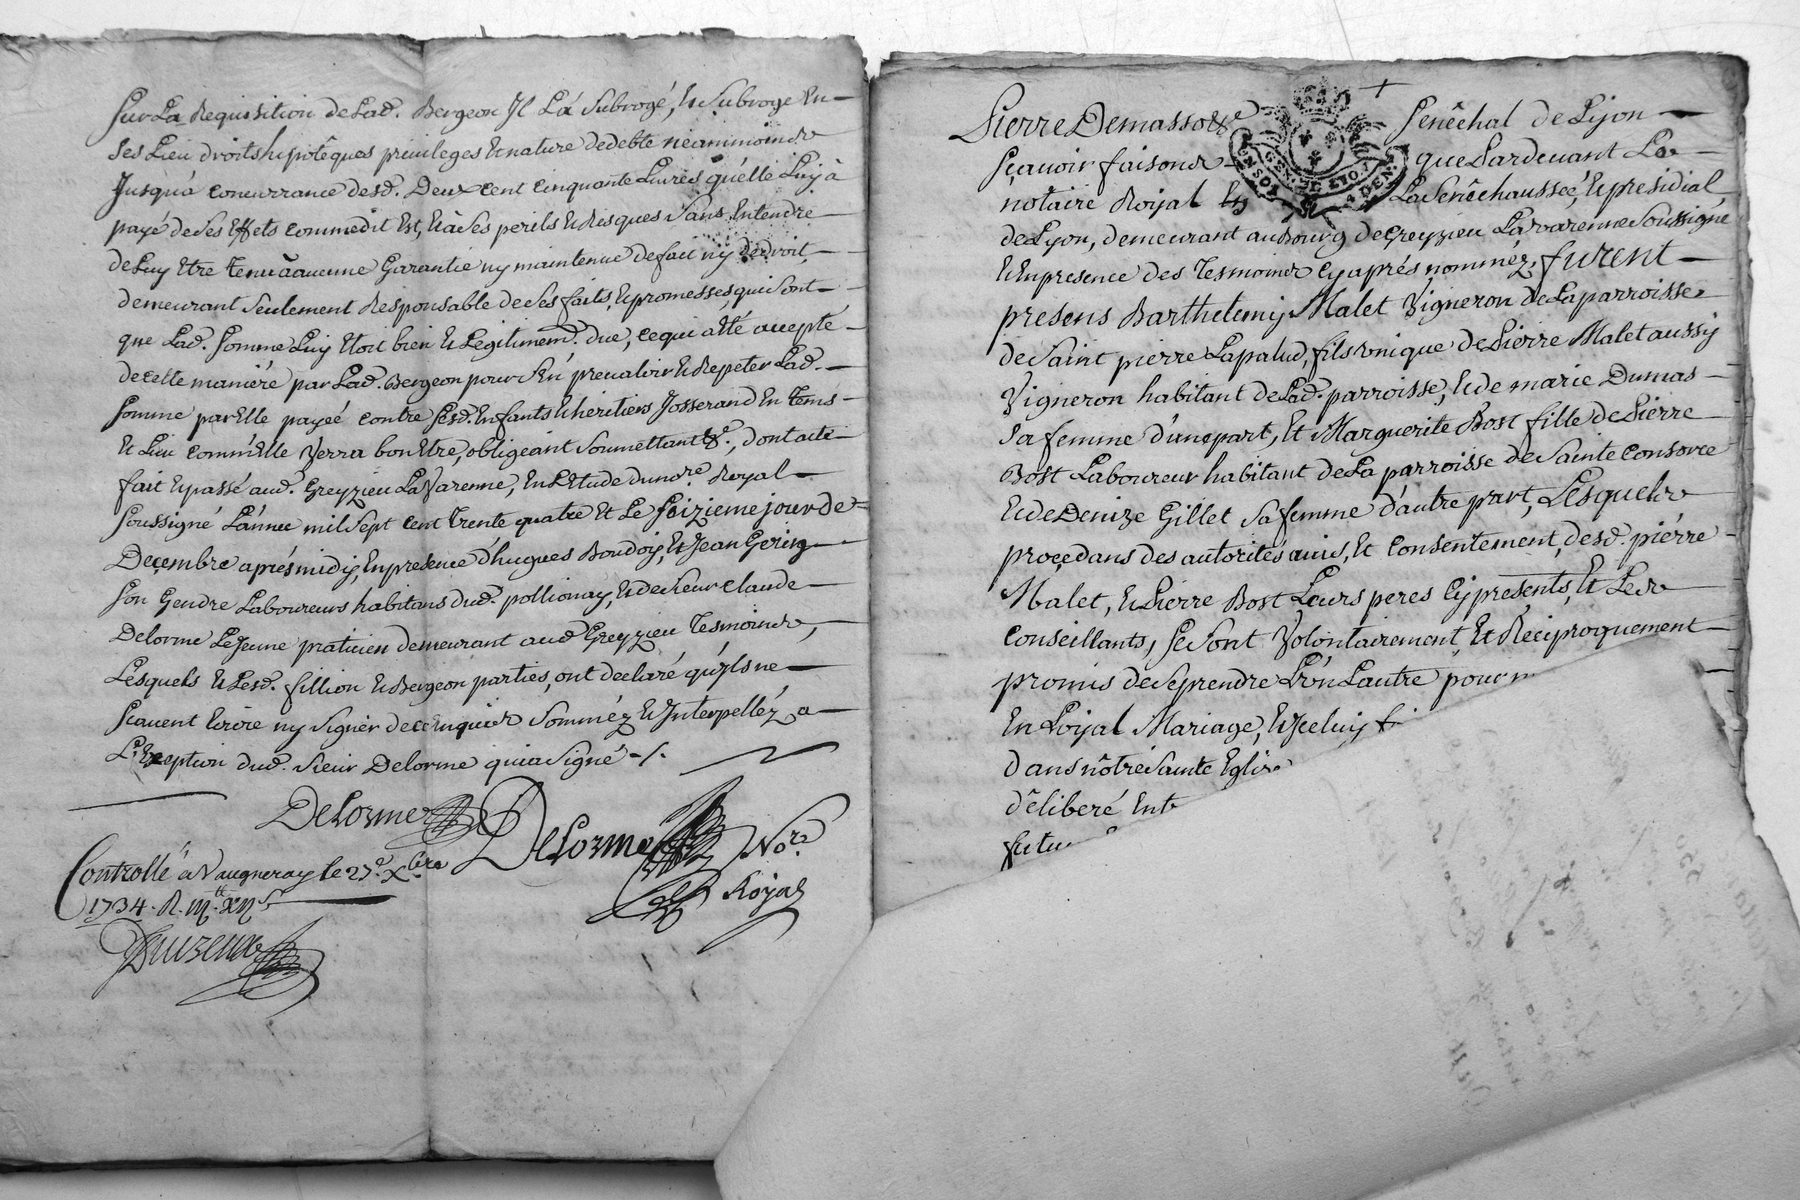 Sur La Requisition de Lad. Bergeon Il La Subrogé, et Subroge En
Ses Lieu droits hipôteques privileges et nature dedebte néammoins
Jusqu'à concurrance desd. Deux cent cinquante Livres qu'elle Luy à
payé de Ses Effets comme dit Est, et à Ses perils et Resques Sans Entendre
de Luy Etre tenu à aucune Garantie ny maintenue de fait ny de droit
demeurant Seulement Responsable de Ses faits, et promesses, qui Sont
que Lad. Somme Luy Etoit bien et Legitimem. due, ce qui a été accepté
de cette maniére par Lad. Bergeon pour S'en prevaloir et Repeter Lad.
Somme par Elle payeé contre Sesd. Enfants et heritiers Josserand En tems
et Lieu comm'Elle Verra bon Etre, obligeant Soumettant &c., dont acte
fait et passé aud. Greyzieu La Varenne, En L'Etude dud. no.re Royal
Soussigné L'année mil Sept cent trente quatre et Le Seizieme jour de
Decembre aprés midy, En presence d'hugues Boudoy, et Jean Gering
Son Gendre Laboureurs habitans dud. pollionay, et de Sieur claude
Delorme Le Jeune praticien demeurant aud Greyzieu tesmoins,
Lesquels et Lesd. fillion et Bergeon parties, ont declaré qu'ils ne
Scavent Ecrire ny Signer de ce Enquis Sommêz et Interpellêz a
L'Exeption dud. Sieur Delorme qui a Signé
Delorme Delorme No.re
Royal
Controllé à Vaugneray le 27e Xbre
1734. R.
Pierre Demasso &c. Senêchal de Lyon
Sçavoir faisons que Pardevant Le
notaire Royal En La Senêchausseé, et presidial
de Lyon, demeurant au Bourg de Greyzieu La varenne Soussigné
et En presence des Tesmoins cy aprés nommêz, furent
presens Barthelemy Malet Vigneron de La parroisse
de Saint pierre Lapalud, fils Vnique de Pierre Malet aussy
Vigneron habitant de Lad. parroisse, et de marie Dumas
Sa femme d'une part, Et Marguerite Bost fille de Pierre
Bost Laboureur habitant de La parroisse de Sainte Consorce
et de Denize Gillet Sa femme d'autre part, Lesquels
procedans des autorités avis, Et consentement, desd. piérre
Malet, et Pierre Bost Leurs peres Cy presents, Et Les
conseillants, Se Sont Volontairement, Et Reciproquement
promis de Se prendre L'ún L'autre pour
En Loyal Mariage, et Jceluy
dans nôtre Sainte Eglise
dêliberé